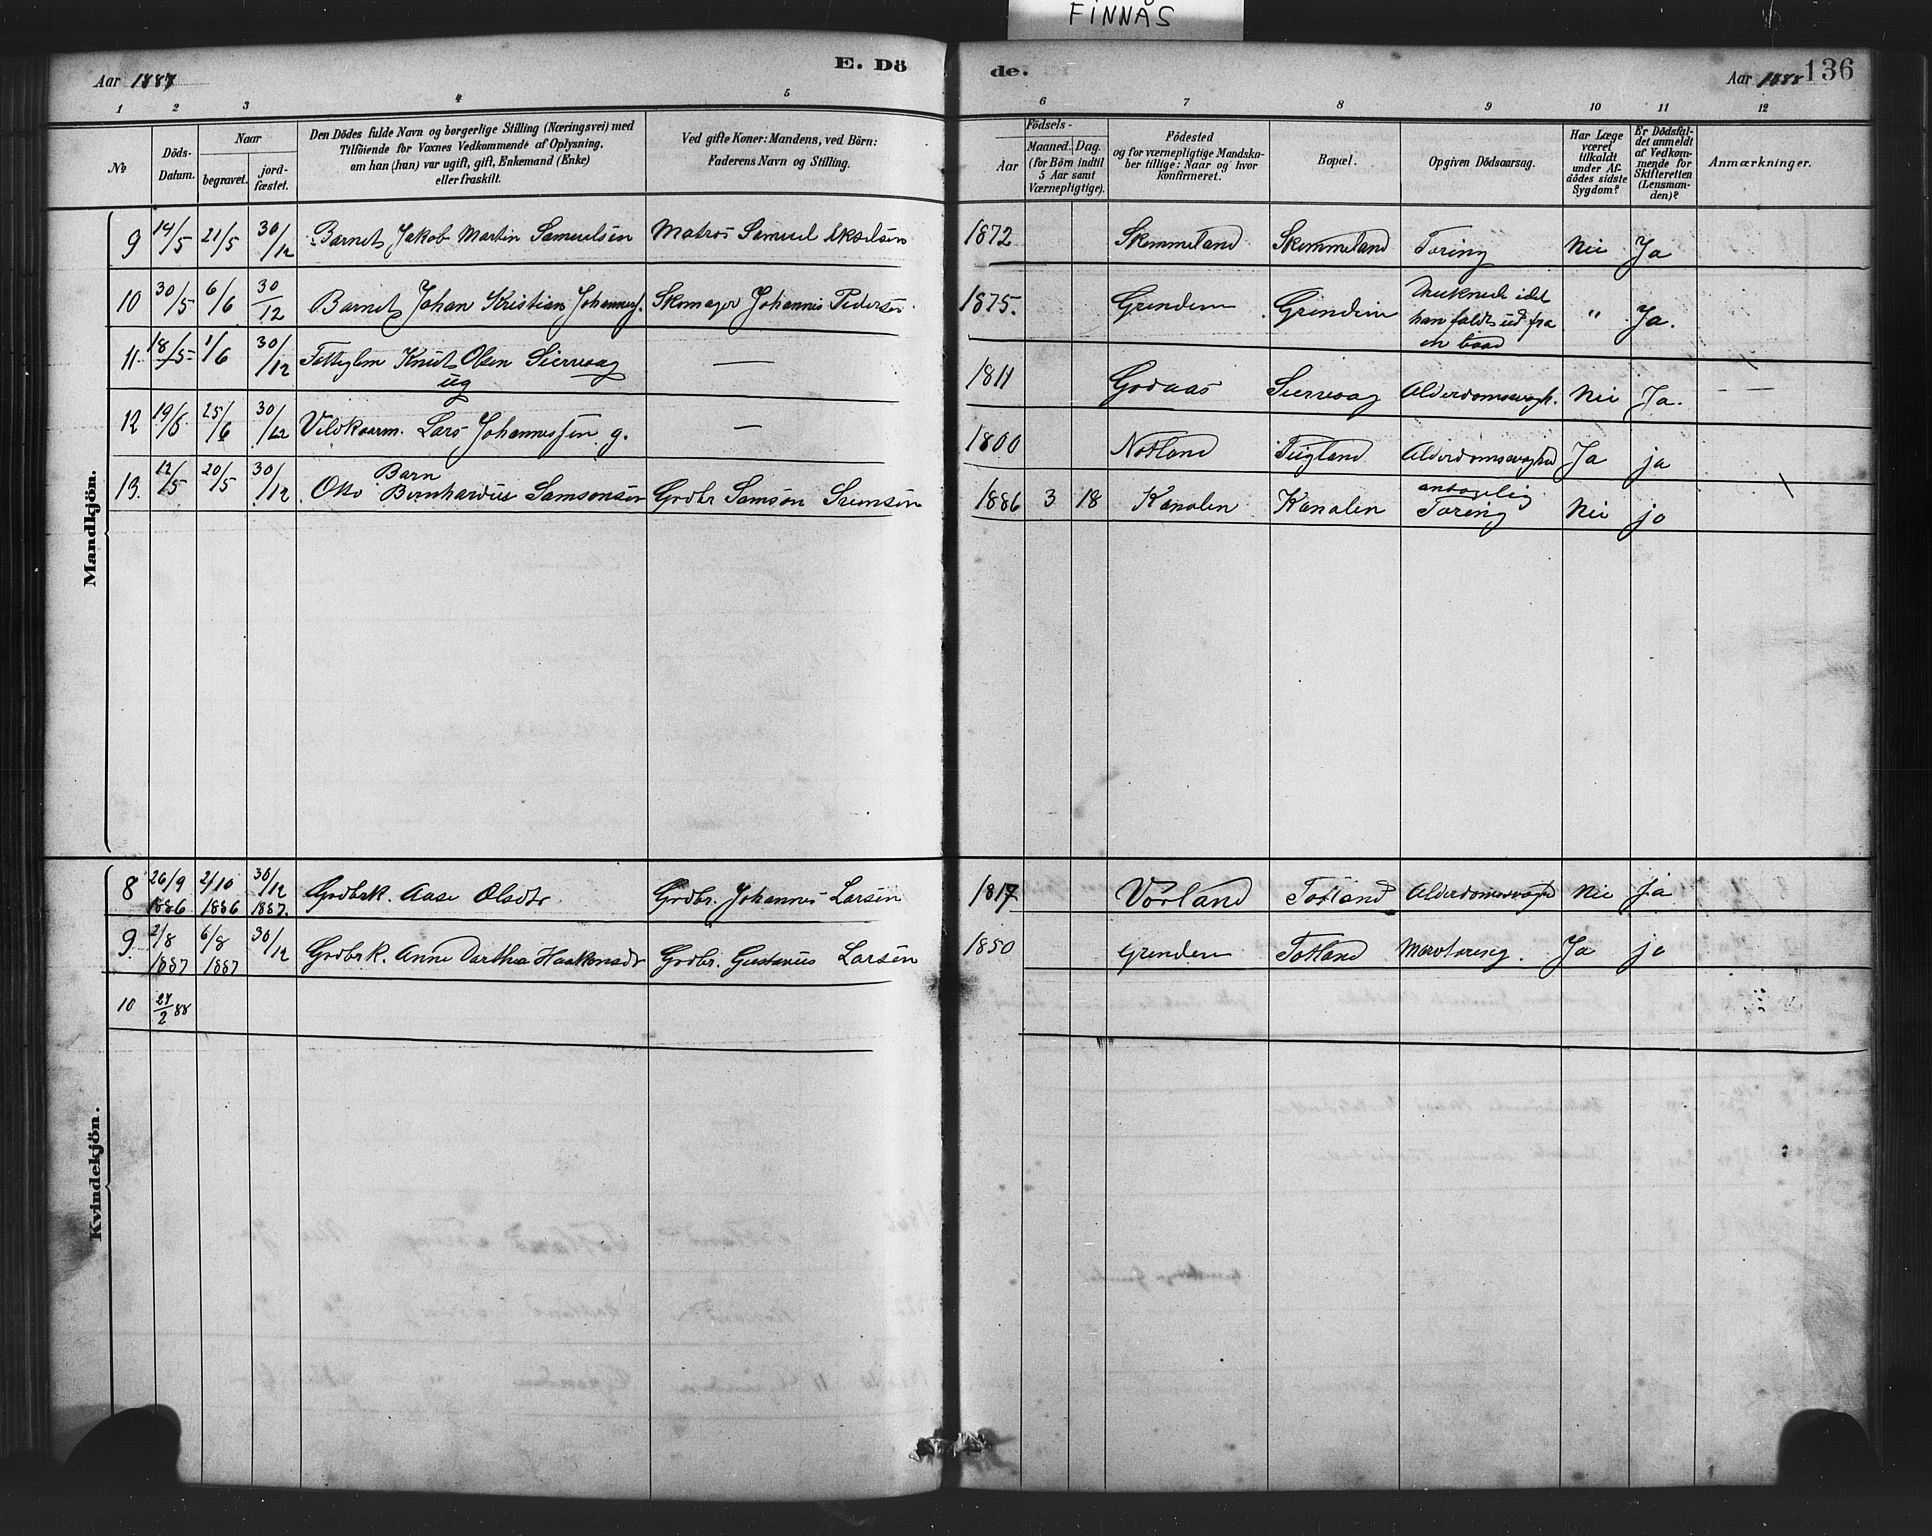 FINNÅS
Aar 1887
E. Dö
de.
Aar 1888
136
1 2 3 4 5
6 7 8 9 10 11 12
No
Döds-Datum.
Naar
begravet.
jord-fæstet.
Den Dödes fulde Navn og borgerlige Stilling (Næringsvei) med
Tilföiende for Voxnes Vedkommende af Oplysning,
om han (hun) var ugift, gift, Enkemand (Enke)
eller fraskilt.
Ved gifte Koner: Mandens, ved Börn:
Faderens Navn og Stilling.
Födsels-
Aar
Maaned. Dag.
(for Börn indtil
5 Aar samt
Værnepligtige).
Födested
og for værnepligtige Mandska-
ber tillige: Naar og hvor
konfirmeret.
Bopæl.
Opgiven Dödsaarsag.
Har Læge
været
tilkaldt
under Af-
dödes sidste
Sygdom?
Er Dödsfal-
det anmeldt
af Vedkom-
mende for
Skifteretten
(Lensman-
den)?
Anmærkninger.
Mandkjön.
9 14/5 21/5 30/12 Barnet Jakob Martin Samuelsen Matros Samuel 1872 Skemmeland Skemmeland Tæring Nei Ja
10 30/5 6/6 30/12 Barnet Johan Kristian Johanness. Skomager Johannes Pedersen 1875. Grenden Grenden Druknede idet
han faldt ud fra
en baad " Ja.
11. 18/5 1/6 30/12 Knut Olsen Siervaag
ug — 1811 Godaas Siervaag Alderdomssvagh. Nei Ja. — —
12 25/6 30/12 Lars Johannessen g. — 1800 Notland Alderdomssvaghed Ja ja
13. 12/5 20/5 30/12 Barn
Otto Bernhardus Samsonsen Grdbr Samson 1886 3 18 Kanalen Kanalen antagelig
Tæring Nei jo
Kvindekjön.
8 26/9 1886 2/10 1886 30/12 1887. Grdbrk. Aase Olsdtr Grdbr. Johannes Larsen 1817 Vorland Totland Alderdomssvaghed Nei ja
9. 2/8 1887 6/8 1887 30/12 Grdbrk. Anne Dorthea Haakonsdtr Grdbr. Gustavus Larsen 1850 Grenden Totland Ja jo
10 27/2 88